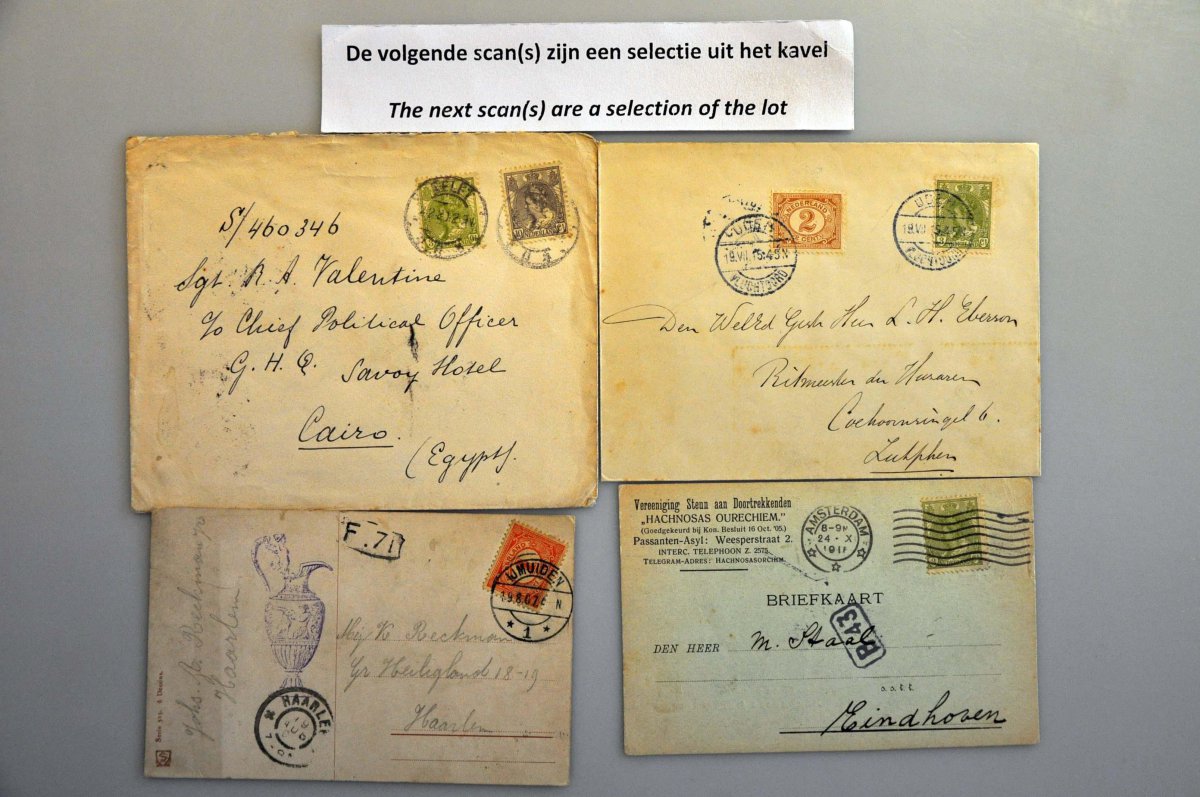 De volgende scan(s) zijn een selectie uit het kavel
The next scan(s) are a selection of the lot
S/460346
Sgt. R. A. Valentine
c/o Chief Political Officer
G. H. Q. Savoy Hotel
Cairo.
(Egypt).
NEDERLAND
2
CENT
19.VII.15.4-5N
VLUCHTOORD
19.VII.15.4-5N
Den WelEd Gestr Heer L. H. Eberson
Ritmeester der Huzaren
Coehoornsingel 6.
Zutphen
F. 71
IJMUIDEN
1
Mej K Reckman
Gr Heiligland 18-19
Haarlem
Joh.
Haarlem
Serie
6 Dessins.
HAARLEM
Vereeniging Steun aan Doortrekkenden
„HACHNOSAS OURECHIEM."
(Goedgekeurd bij Kon. Besluit 16 Oct. '05.)
Passanten-Asyl: Weesperstraat 2.
INTERC. TELEPHOON Z. 2575.
TELEGRAM-ADRES: HACHNOSASORCHM.
AMSTERDAM
24 X
1911
BRIEFKAART
B43
DEN HEER M. Staal
Eindhoven